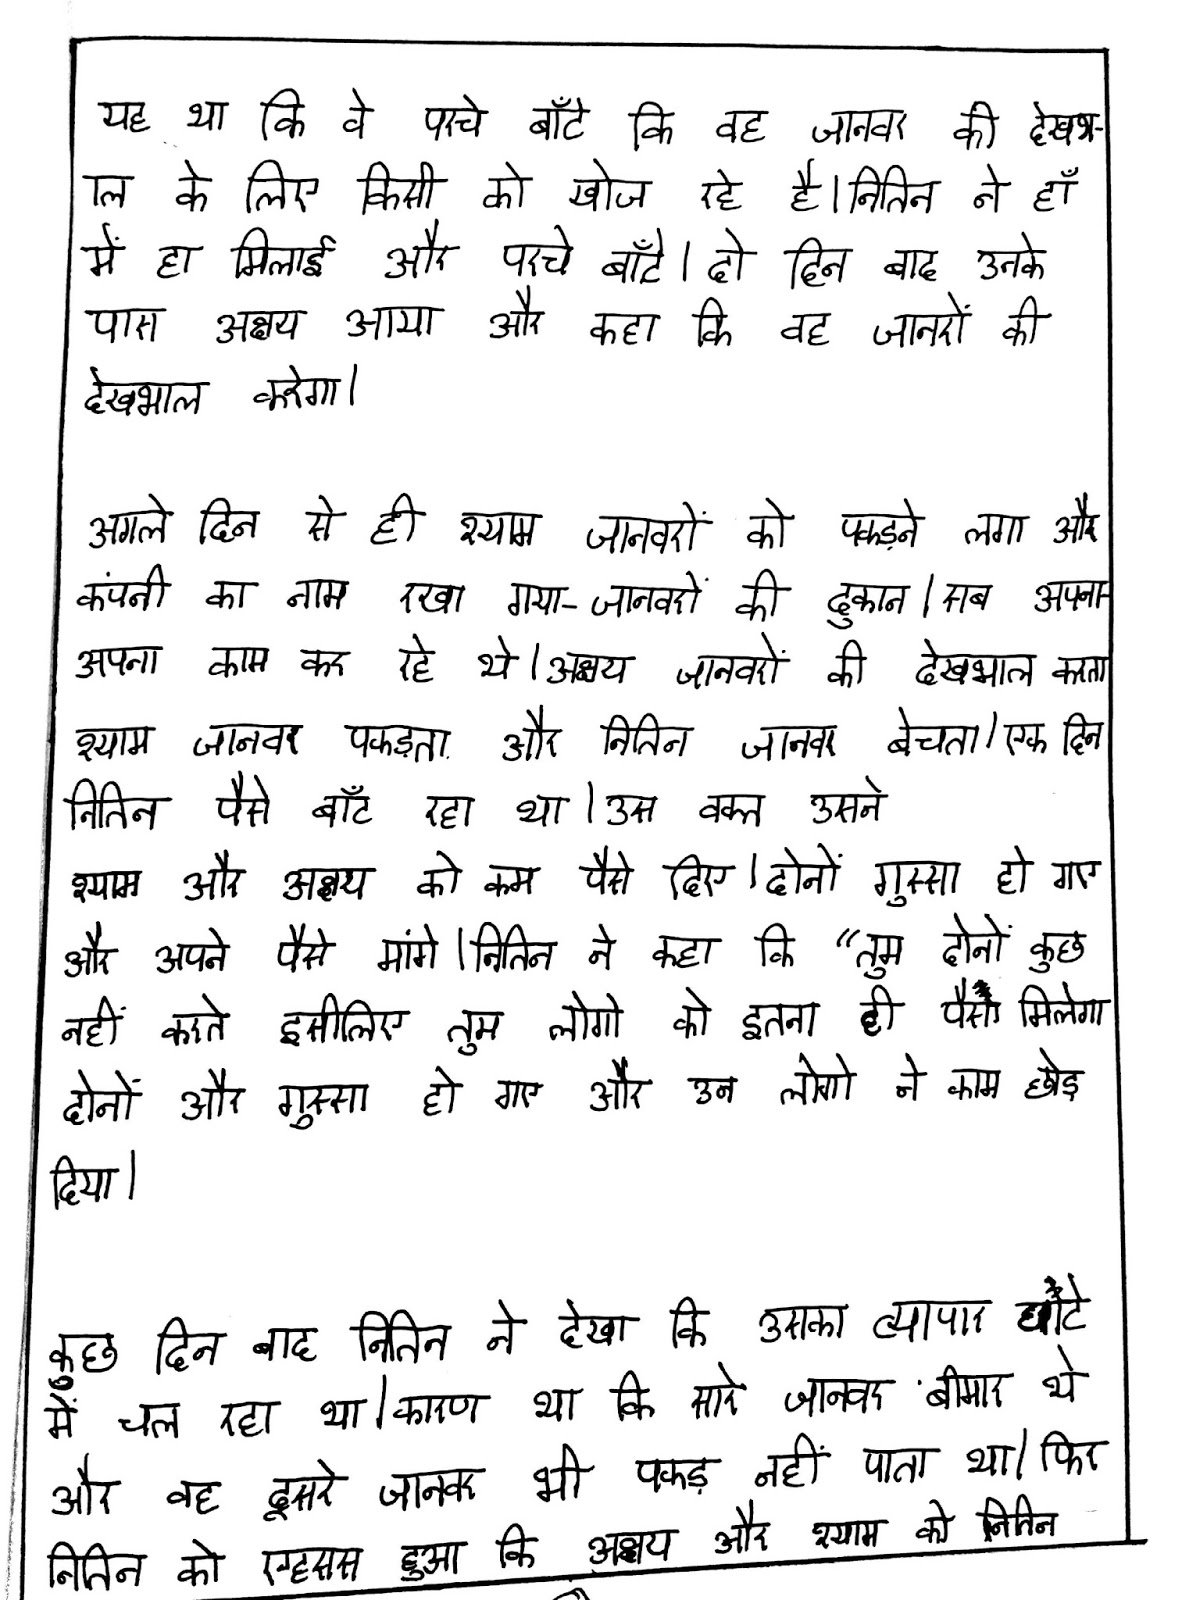 यह था कि वे परचे बाँटे कि वह जानवर की देखभ-
ाल के लिए किसी को खोज रहे है।नितिन ने हाँ
में हा मिलाई और परचे बाँटे।दो दिन बाद उनके
पास अक्षय आया और कहा कि वह जानरों की
देखभाल करेगा।
अगले दिन से ही श्याम जानवरों को पकड़ने लगा और
कंपनी का नाम रखा गया-जानवरों की दुकान।सब अपना-
अपना काम कर रहे थे।अक्षय जानवरों की देखभाल करता
श्याम जानवर पकड़ता और नितिन जानवर बेचता।एक दिन
नितिन पैसे बाँट रहा था।उस वक्त उसने
श्याम और अक्षय को कम पैसे दिए।दोनों गुस्सा हो गए
और अपने पैसे मांगे।नितिन ने कहा कि “तुम दोनों कुछ
नहीं करते इसीलिए तुम लोगो को इतना ही पैसा मिलेगा
दोनों और गुस्सा हो गए और उन लोगो ने काम छोड़
दिया।
कुछ दिन बाद नितिन ने देखा कि उसका व्यापार घाँटे
में चल रहा था।कारण था कि सारे जानवर बीमार थे
और वह दूसरे जानवर भी पकड़ नहीं पाता था।फिर
नितिन को एहसस हुआ कि अक्षय और श्याम को नितिन